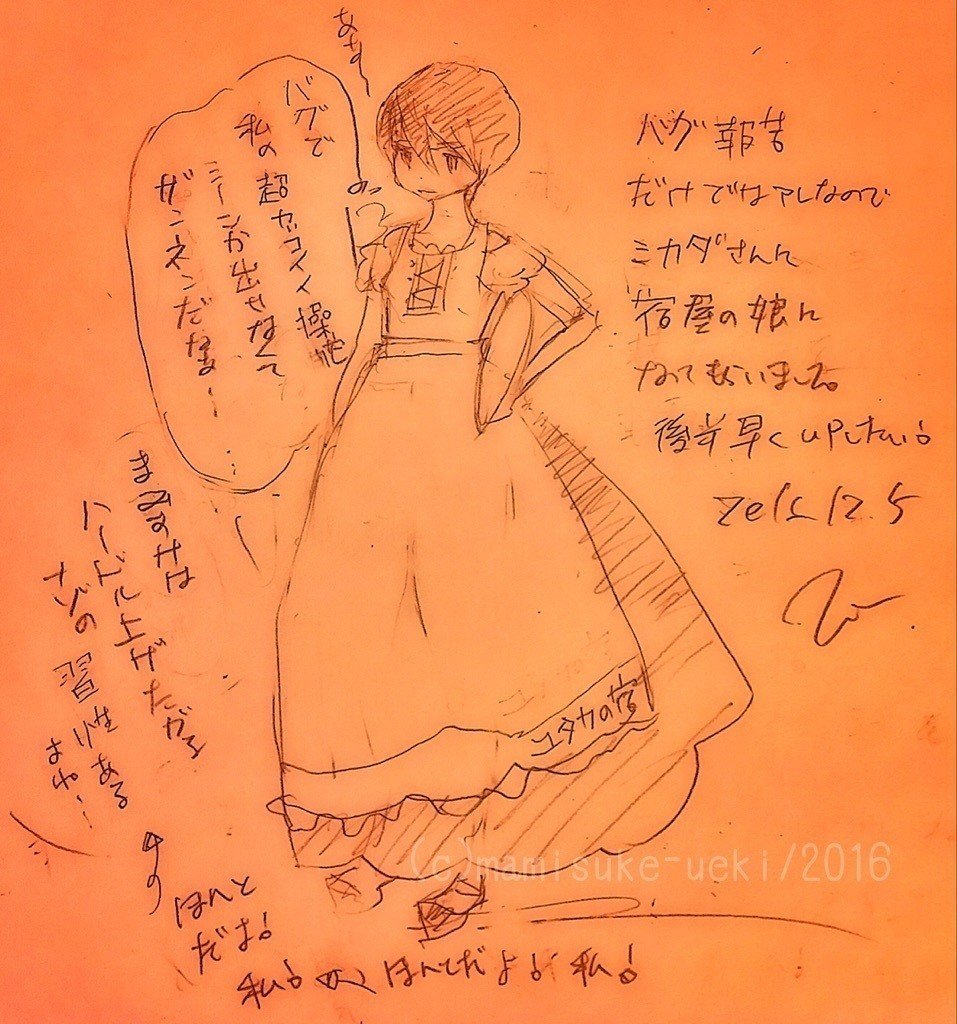 バグ報告
だけではアレなので
ミカダさんに
宿屋の娘に
なってもらいました。
後半早くUPしたい。
12.5
あな〜
バグで
私の超カッコイイ操舵
シーンが出せなくて
ザンネンだなぁ…
まみすけは
ハードル上げたがる
ナゾの習性ある
よね…
ユタカの宿
ほんと
だよ!
私!
ほんとだよ! 私!
(c)mamisuke-ueki/2016